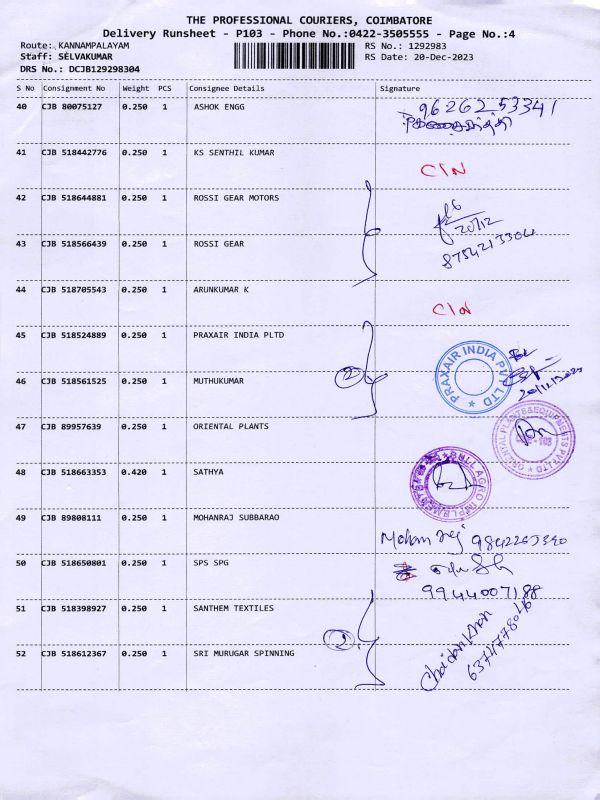 THE PROFESSIONAL COURIERS, COIMBATORE
Delivery Runsheet - P103 - Phone No.:0422-3505555 - Page No.:4
Route: KANNAMPALAYAM RS No.: 1292983
Staff: SELVAKUMAR RS Date: 20-Dec-2023
DRS No.: DCJB129298304
S No Consignment No Weight PCS Consignee Details Signature
40 CJB 80075127 0.250 1 ASHOK ENGG 9626253341
41 CJB 518442776 0.250 1 KS SENTHIL KUMAR C/N
42 CJB 518644881 0.250 1 ROSSI GEAR MOTORS
20/12
43 CJB 518566439 0.250 1 ROSSI GEAR 8754213304
44 CJB 518705543 0.250 1 ARUNKUMAR K C/N
45 CJB 518524889 0.250 1 PRAXAIR INDIA PLTD PRAXAIR INDIA PVT LTD
46 CJB 518561525 0.250 1 MUTHUKUMAR 2 20/12/2023
47 CJB 89957639 0.250 1 ORIENTAL PLANTS ORIENTAL PLANTS&EQUIPMENTS PVT.LTD
48 CJB 518663353 0.420 1 SATHYA BULL AGRO IMPLEMENTS
49 CJB 89808111 0.250 1 MOHANRAJ SUBBARAO Mohan raj 9842263390
50 CJB 518650801 0.250 1 SPS SPG
9944007188
51 CJB 518398927 0.250 1 SANTHEM TEXTILES
2
52 CJB 518612367 0.250 1 SRI MURUGAR SPINNING